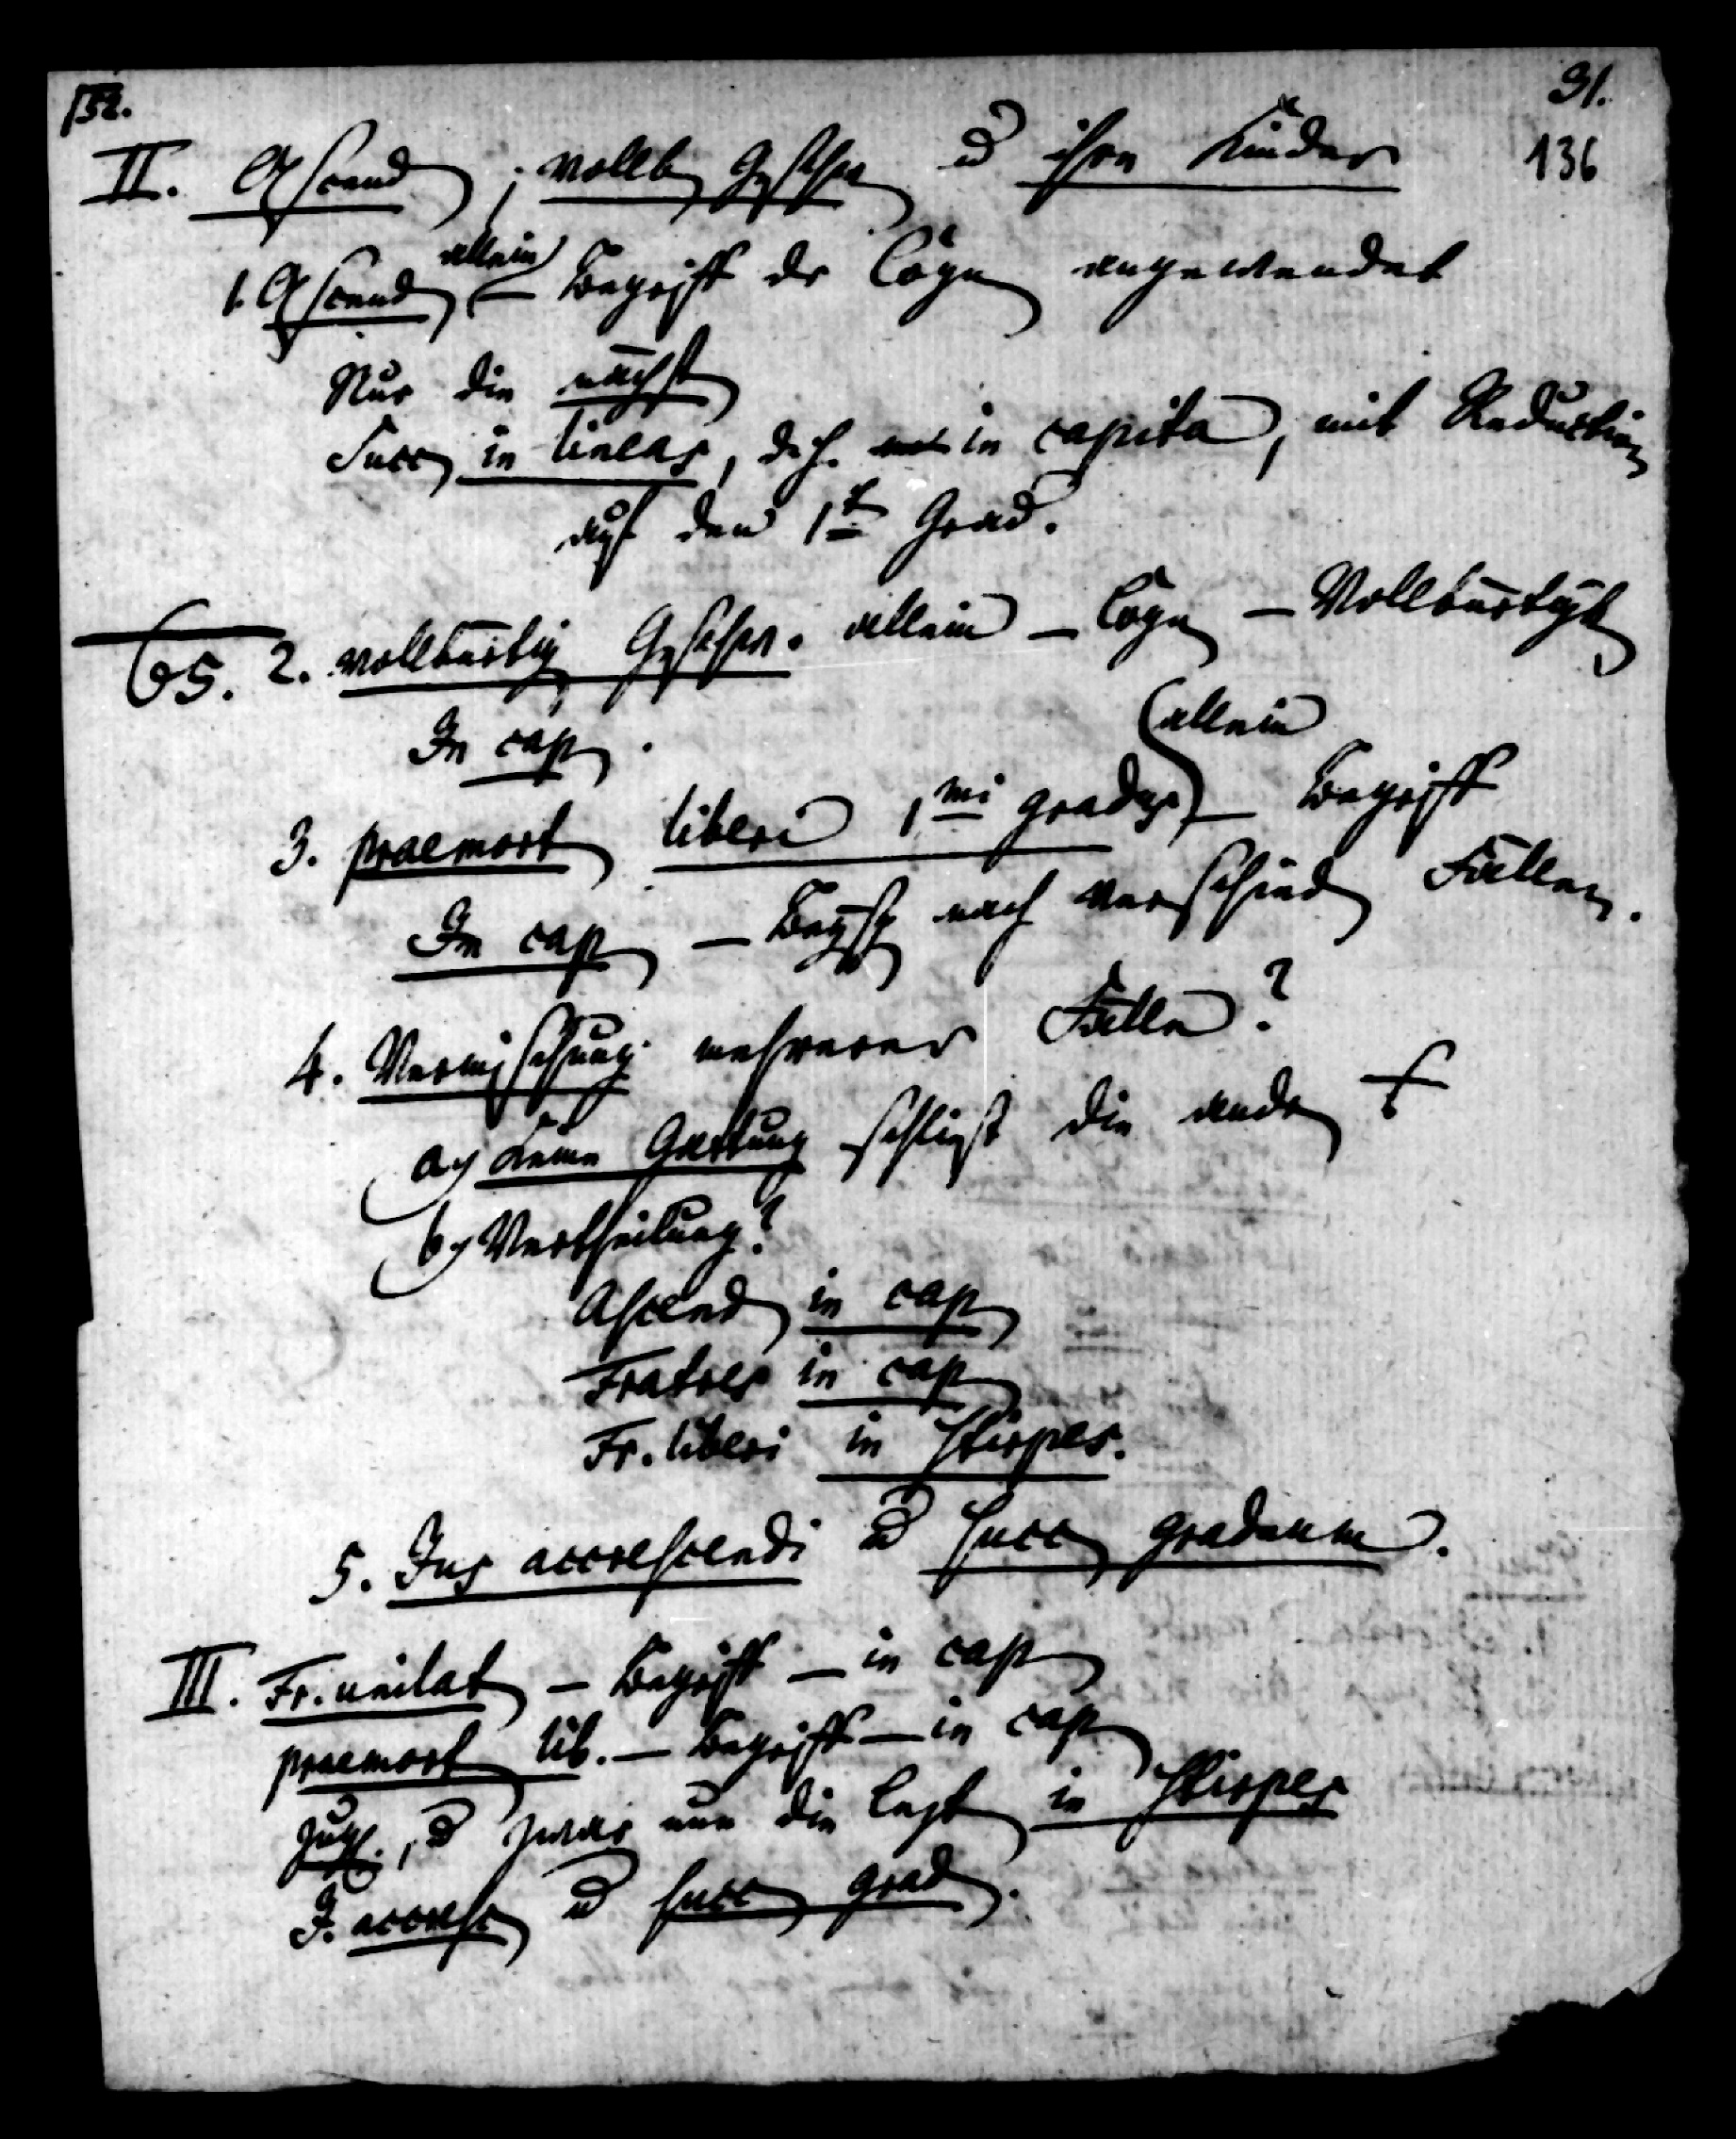 152. 31.
136
II. Ascend; vollb Geschw u ihre Kinder
1. Ascend allein – Begriff der Cogn angewendet
Nur die nächst
Succ in lineas, d.h. in capita, mit Reduction
auf den 1t Grad.
65. 2. vollbürtig Geschw. allein – Cogn – Vollbürtigk
In cap.
3. praemort liberi 1mi gradus allein – Begriff
In cap – Beysp nach verschied Fällen.
4. Vermischung mehrerer Fälle?
a) Keine Gattung schließt die andr
b) Vertheilung?
Ascend in cap
Fratres in cap
Fr. liberi in stirpes.
5. Jus accrescendi u succ graduum.
III. Fr. unilat – Begriff – in cap
praemort lib. – Begriff – in cap
zugl., u zwar nun die letzt in stirpes
J. accresc u succ grad.